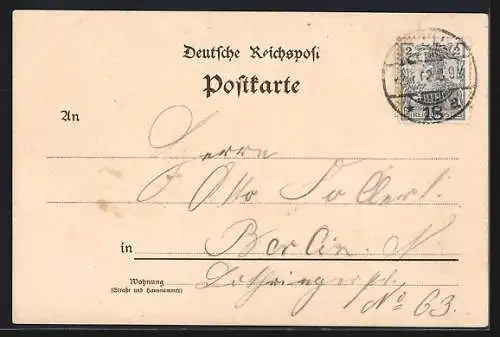 Deutsche Reichspost
Postkarte
An
Herrn
Otto
in Berlin. N
Wohnung
(Straße und Hausnummer)
Lothringerstr.
No 63.